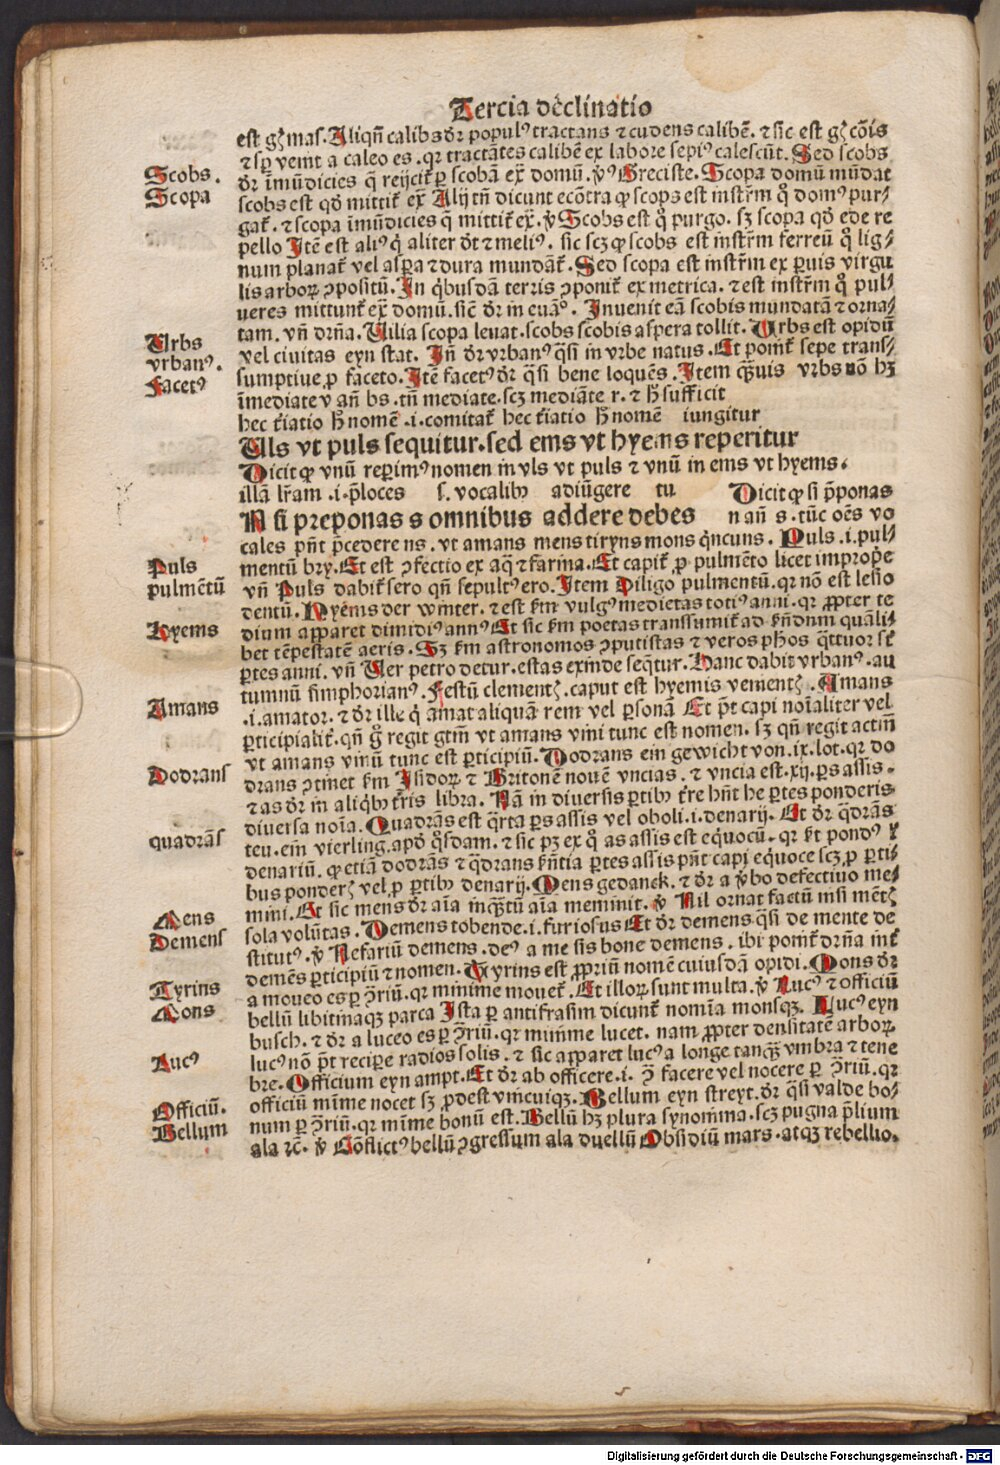 Tercia declinatio
est gͦ mas. Aliqñ calibs dr̄ populꝰ tractans ⁊ cudens calibē. ⁊ sic est gͦ cōis
⁊ sꝑ venit a caleo es. qr tractātes calibē ex labore sepiꝰ calescūt. Sed scobs
Scobs.
dr̄ īmūdicies q̄ reijcit᷑ ꝑ scobā ex domū. v̓ꝰ Greciste. Scopa domū mūdat
Scopa
scobs est qd̓ mittit᷑ ex Alij tñ dicunt ecōtra ꝙ scops est instr̄m q̊ domꝰ pur⸗
gat᷑. ⁊ scopa īmūdicies q̄ mittit᷑ ex. v̓ Scobs est q̊ purgo. sꝫ scopa qd̓ ede re
pello Itē est aliꝰ q̓ aliter dt̄ ⁊ meliꝰ. sic scꝫ ꝙ scobs est instr̄m ferreū q̊ lig⸗
num planat᷑ vel asꝑa ⁊ dura mundāt᷑. Sed scopa est instr̄m ex ꝑuis virgu
lis arboꝝ ꝯpositū. In q̓busdā terris ꝯponit᷑ ex metrica. ⁊ est instr̄m q̊ pul⸗
ueres mittunt᷑ ex domū. sic̄ dr̄ in euāᵒ. Inuenit eā scobis mundatā ⁊ orna⸗
tam. vñ drn̄a. Uilia scopa leuat. scobs scobis aspera tollit. Urbs est opidū
Urbs
vel ciuitas eyn stat. Iñ dr̄ vrbanꝰ q̄si in vrbe natus. Et ponit᷑ sepe trans⸗
vrbanꝰ.
sumptiue ꝓ faceto. Itē facetꝰ dr̄ q̄si bene loquēs. Item q̄uis vrbs nō hꝫ
Facetꝰ
īmediate v añ bs. tñ mediate. scꝫ mediāte r. ⁊ h̄ sufficit
hec t̄iatio h̄ nomē .i. comitat᷑ hec t̄iatio h̄ nomē iungitur
Uls vt puls sequitur. sed ems vt hyems reperitur
Dicit ꝙ vnū reꝑimꝰ nomen in vls vt puls ⁊ vnū in ems vt hyems.
illā lr̄am .i. p̄loces s. vocalibꝫ adiūgere tu Dicit ꝙ si p̄ponas
N si preponas s omnibus addere debes n añ s. tūc oēs vo
cales pn̄t p̄cedere ns. vt amans mens tiryns mons q̓ncuns. Puls .i. pul⸗
Puls
mentū bry. Et est ꝯfectio ex aq̄ ⁊ farina. Et capit᷑ ꝓ pulmēto licet imprope
pulmētū
vñ Puls dabit᷑ sero qñ sepultꝰ ero. Item Diligo pulmentū. qr nō est lesio
dentū. Hyems der winter. ⁊ est k̄m vulgꝰ medietas totiꝰ anni. qr ꝓpter te
Hyems
dium apparet dimidiꝰ annꝰ Et sic k̄m poetas transsumit᷑ ad kn̄dum quāli⸗
bet tēpestatē aeris. Sꝫ k̄m astronomos ꝯputistas ⁊ veros phos q̄ttuor st̄
ꝑtes anni. vñ Uer petro detur. estas exinde seq̄tur. Hanc dabit vrbanꝰ. au
tumnū simphorianꝰ. Festū clementꝭ. caput est hyemis venientꝭ. Amans
Amans
.i. amator. ⁊ dr̄ ille q̓ amat aliquā rem vel ꝑsonā Et pt̄ capi noīaliter vel
ꝑticipialit᷑. qñ gͦ regit gtm̄ vt amans vini tunc est nomen. sꝫ qñ regit actm̄
vt amans vinū tunc est ꝑticipiū. Dodrans ein gewicht von .ix. lot. qr do
Dodrans
drans ꝯtinet k̄m Isidoꝝ ⁊ Britonē nouē vncias. ⁊ vncia est .xij. ꝑs assis.
⁊ as dr̄ in aliq̓bꝫ tr̄is libra. Nā in diuersis ꝑtibꝫ tr̄e hn̄t he ꝑtes ponderis
diuersa noīa. Quadrās est q̄rta ꝑs assis vel oboli .i. denarij. Et dr̄ q̄drās
quadrās
teu. ein vierling. apd̓ q̊sdam. ⁊ sic pꝫ ex q̊ as assis est eq̓uocū. qr k̄t pondꝰ ⁊
denariū. ꝙ etiā dodrās ⁊ q̄drans kn̄tia ꝑtes assis pn̄t capi eq̓uoce scꝫ ꝓ ꝑti⸗
bus ponderꝭ vel ꝓ ꝑtibꝫ denarij. Mens gedanck. ⁊ dr̄ a v̓bo defectiuo me⸗
mini. Et sic mens dr̄ aīa inq̄tū aīa meminit. v̓ Nil ornat factū nisi mētꝭ
Mens
sola volūtas. Demens tobende .i. furiosus Et dr̄ demens q̄si de mente de
Demens
stitutꝰ. v̓ Nefariū demens. deꝰ a me sis bone demens. ibi ponit᷑ drn̄a int᷑
demēs ꝑticipiū ⁊ nomen. Tyrins est ꝓpriū nomē cuiusdā opidi. Mons dr̄
Tyrins
a moueo es ꝑ ꝯ̄riū. qr minime mouet᷑. Et illoꝝ sunt multa. v̓ Lucꝰ ⁊ officiū
Mons
bellū libitinaqꝫ parca Ista ꝑ antifrasim dicunt᷑ nomīa monsqꝫ. Lucꝰ eyn
busch. ⁊ dr̄ a luceo es ꝑ ꝯ̄riū. qr minime lucet. nam ꝓpter densitatē arboꝝ
Lucꝰ
lucꝰ nō pt̄ reciꝑe radios solis. ⁊ sic apparet lucꝰ a longe tanq̄ vmbra ⁊ tene
bre. Officium eyn ampt. Et dr̄ ab officere .i. ꝯ̄ facere vel nocere ꝑ ꝯ̄riū. qr
Officiū.
officiū minīe nocet sꝫ ꝓdest vnicuiqꝫ. Bellum eyn streyt. dr̄ q̄si valde bo⸗
Bellum
num ꝑ ꝯ̄riū. qr minīe bonū est. Bellū hꝫ plura synonima. scꝫ pugna p̄lium
ala ⁊c̄. v̓ Cōflictꝰ bellū ꝯgressum ala duellū Obsidiū mars. atqꝫ rebellio.
Digitalisierung gefördert durch die Deutsche Forschungsgemeinschaft - DFG